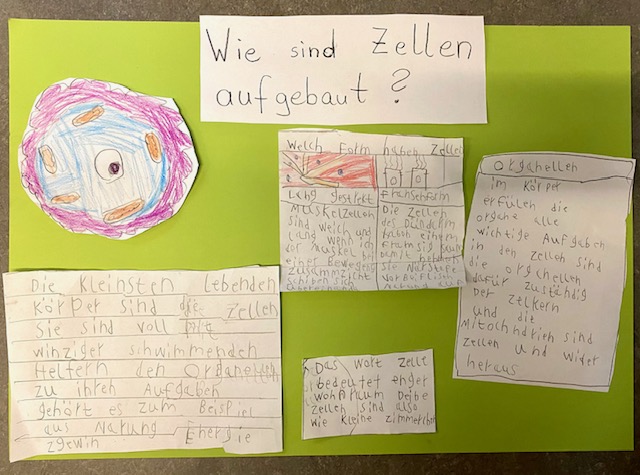 Wie sind Zellen
aufgebaut?
Welch Form haben Zellen
Lang gestrekt
Muskelzellen
sind weich und
Lang wenn ich
der Muskel bei
einer Bewegung
zusammzicht
schiben sich
Fransenform
Die Zellen
des Dünndarm
haben einem
damit
sie Närstofe
Organellen
im Körper
erfülen die
organe alle
wichtige Aufgaben
in den Zellen sind
die orghellen
dafür zuständig
Der Zelkern
und die
Mitochhdrien sind
Zellen und wider
heraus
Die Kleinsten Lebenden
Körper sind die Zellen
Sie sind voll mit
winziger schwimmenden
Helfern den Organellen
zu ihren Aufgaben
gehört es zum Beispiel
aus Narung Energie
zgewin
Das wort zelle
bedeutet enger
wohnraum Deibe
Zellen sind also
wie kleine zimmerchen